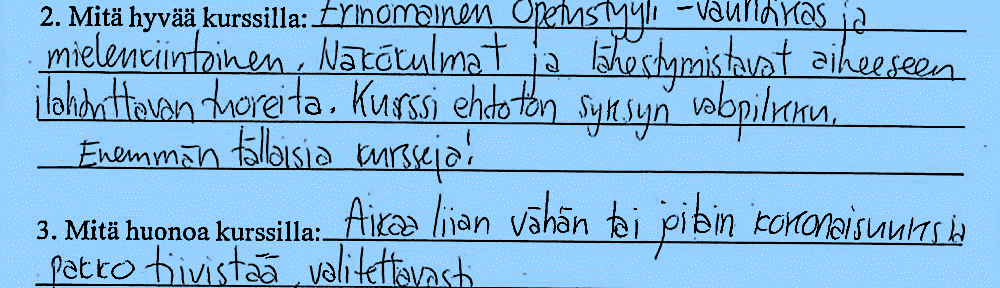 2. Mitä hyvää kurssilla: Erinomainen opetustyyli - vauhdikas ja
mielenkiintoinen. Näkökulmat ja lähestymistavat aiheeseen
ilahduttavan tuoreita. Kurssi ehdoton syksyn valopilkku.
Enemmän tällaisia kursseja!
3. Mitä huonoa kurssilla: Aikaa liian vähän tai pitkin kokonaisuuksia
pakko tiivistää, valitettavasti